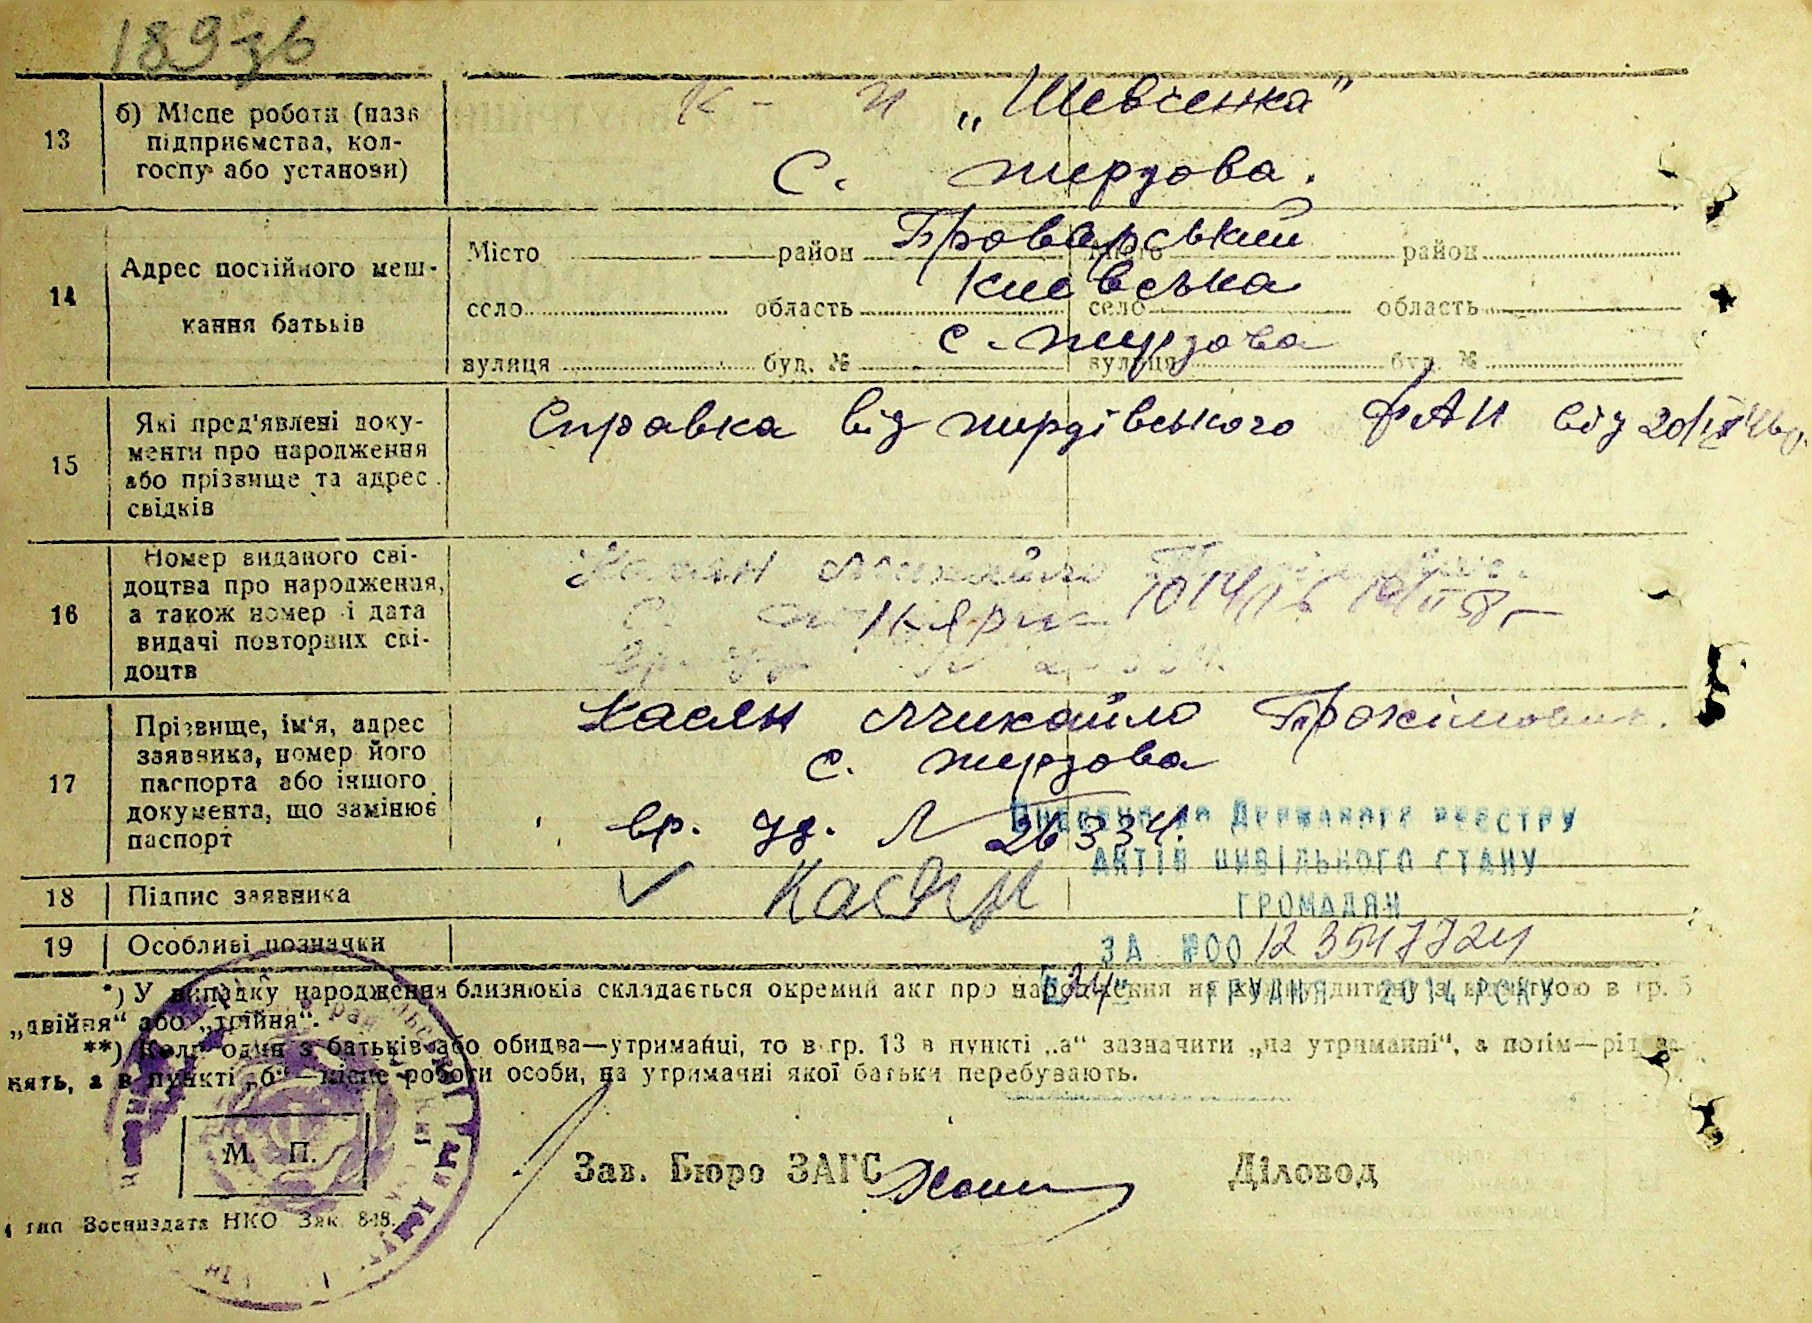 189зв
13
б) Місце роботи (назв
підприємства, кол-
госпу або установи)
к-п „Шевченка"
с. жердова.
14
Адрес постійного меш-
кання батьків
Місто район Броварський місто район
село область Київська село область
вуляця буд. № с. жердова вуляця буд. №
15
Які пред'явлені доку-
менти про народження
або прізвище та адрес
свідків
Справка від жердівського ФАП від
16
Номер виданого сві-
доцтва про народження,
а також номер і дата
видачі повторних сві-
доцтв
Касян Михайло
17
Прізвище, ім'я, адрес
заявника, номер його
паспорта або іншого
документа, що замінює
паспорт
Касян Михайло Трохімович.
с. жердова
вр. уд. № 26334.
18
Підпис заявника
Касян
19
Особливі позначки
Внесено до Державного реєстру
актів цивільного стану
громадян
за №00 123547724
"24" грудня 2014 року
*) У випадку народження близнюків складається окремий акт про народження на з в гр. 5
„двійня“ або „трійня“.
**) Коли один з батьків або обидва—утриманці, то в гр. 13 в пункті „а“ зазначити „на утриманні“, а потім—рід за-
нять, а в пункті „б“—місце роботи особи, на утриманні якої батьки перебувають.
М. П.
Зав. Бюро ЗАГС
Діловод
4 тип Воениздата НКО Зак. 848.